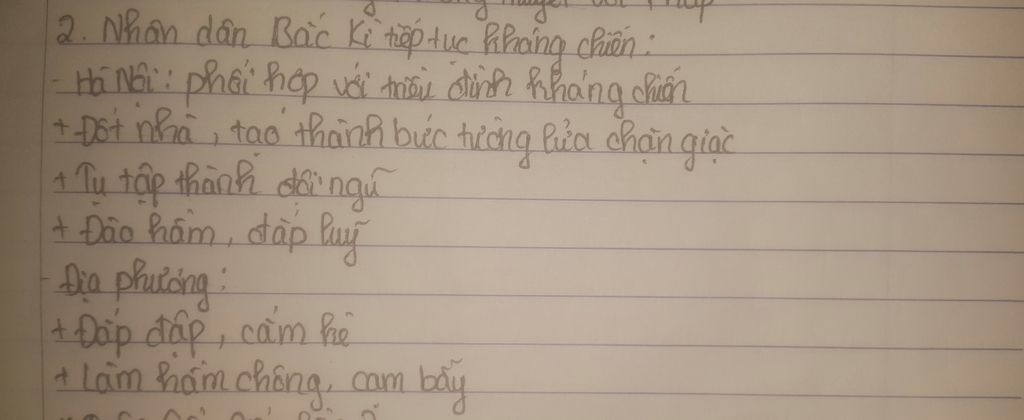 2. Nhân dân Bắc Kì tiếp tục kháng chiến:
- Hà Nội: phối hợp với triều đình kháng chiến
+ Đốt nhà, tạo thành bức tường lửa chặn giặc
+ Tụ tập thành đội ngũ
+ Đào hầm, đắp luỹ
- Địa phương:
+ Đắp đập, cắm kè
+ Làm hầm chông, cạm bẫy